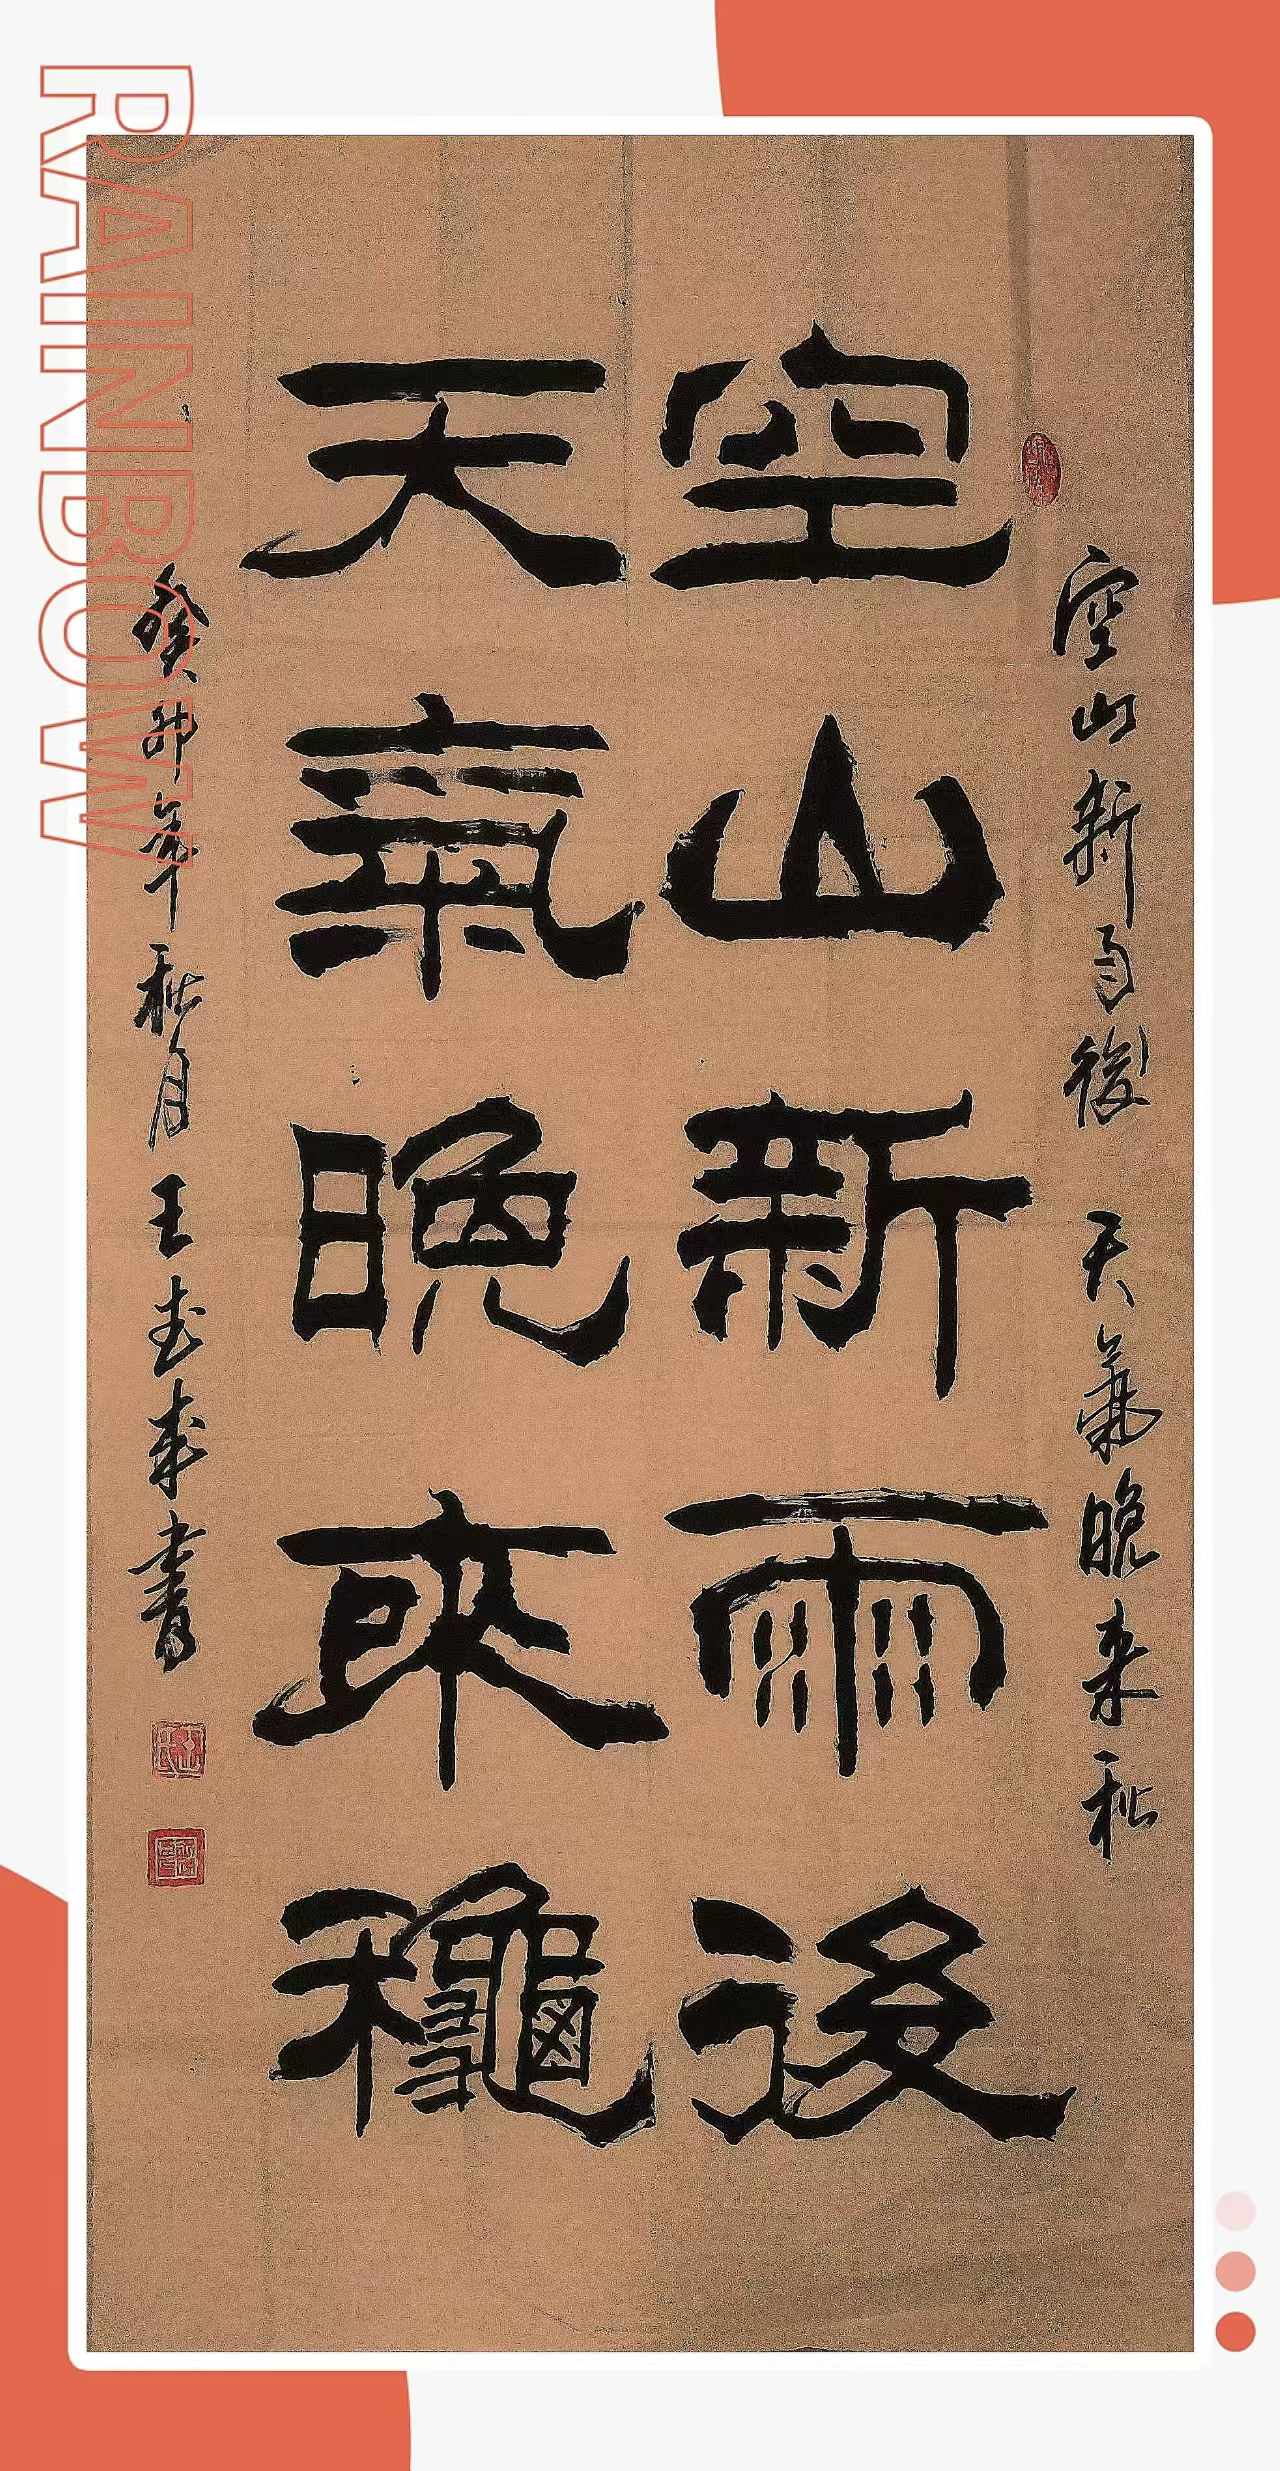 空山新雨後
天氣晚來龝
空山新雨後 天氣晚来秋
癸卯年秋月王武來書
RAINBOW